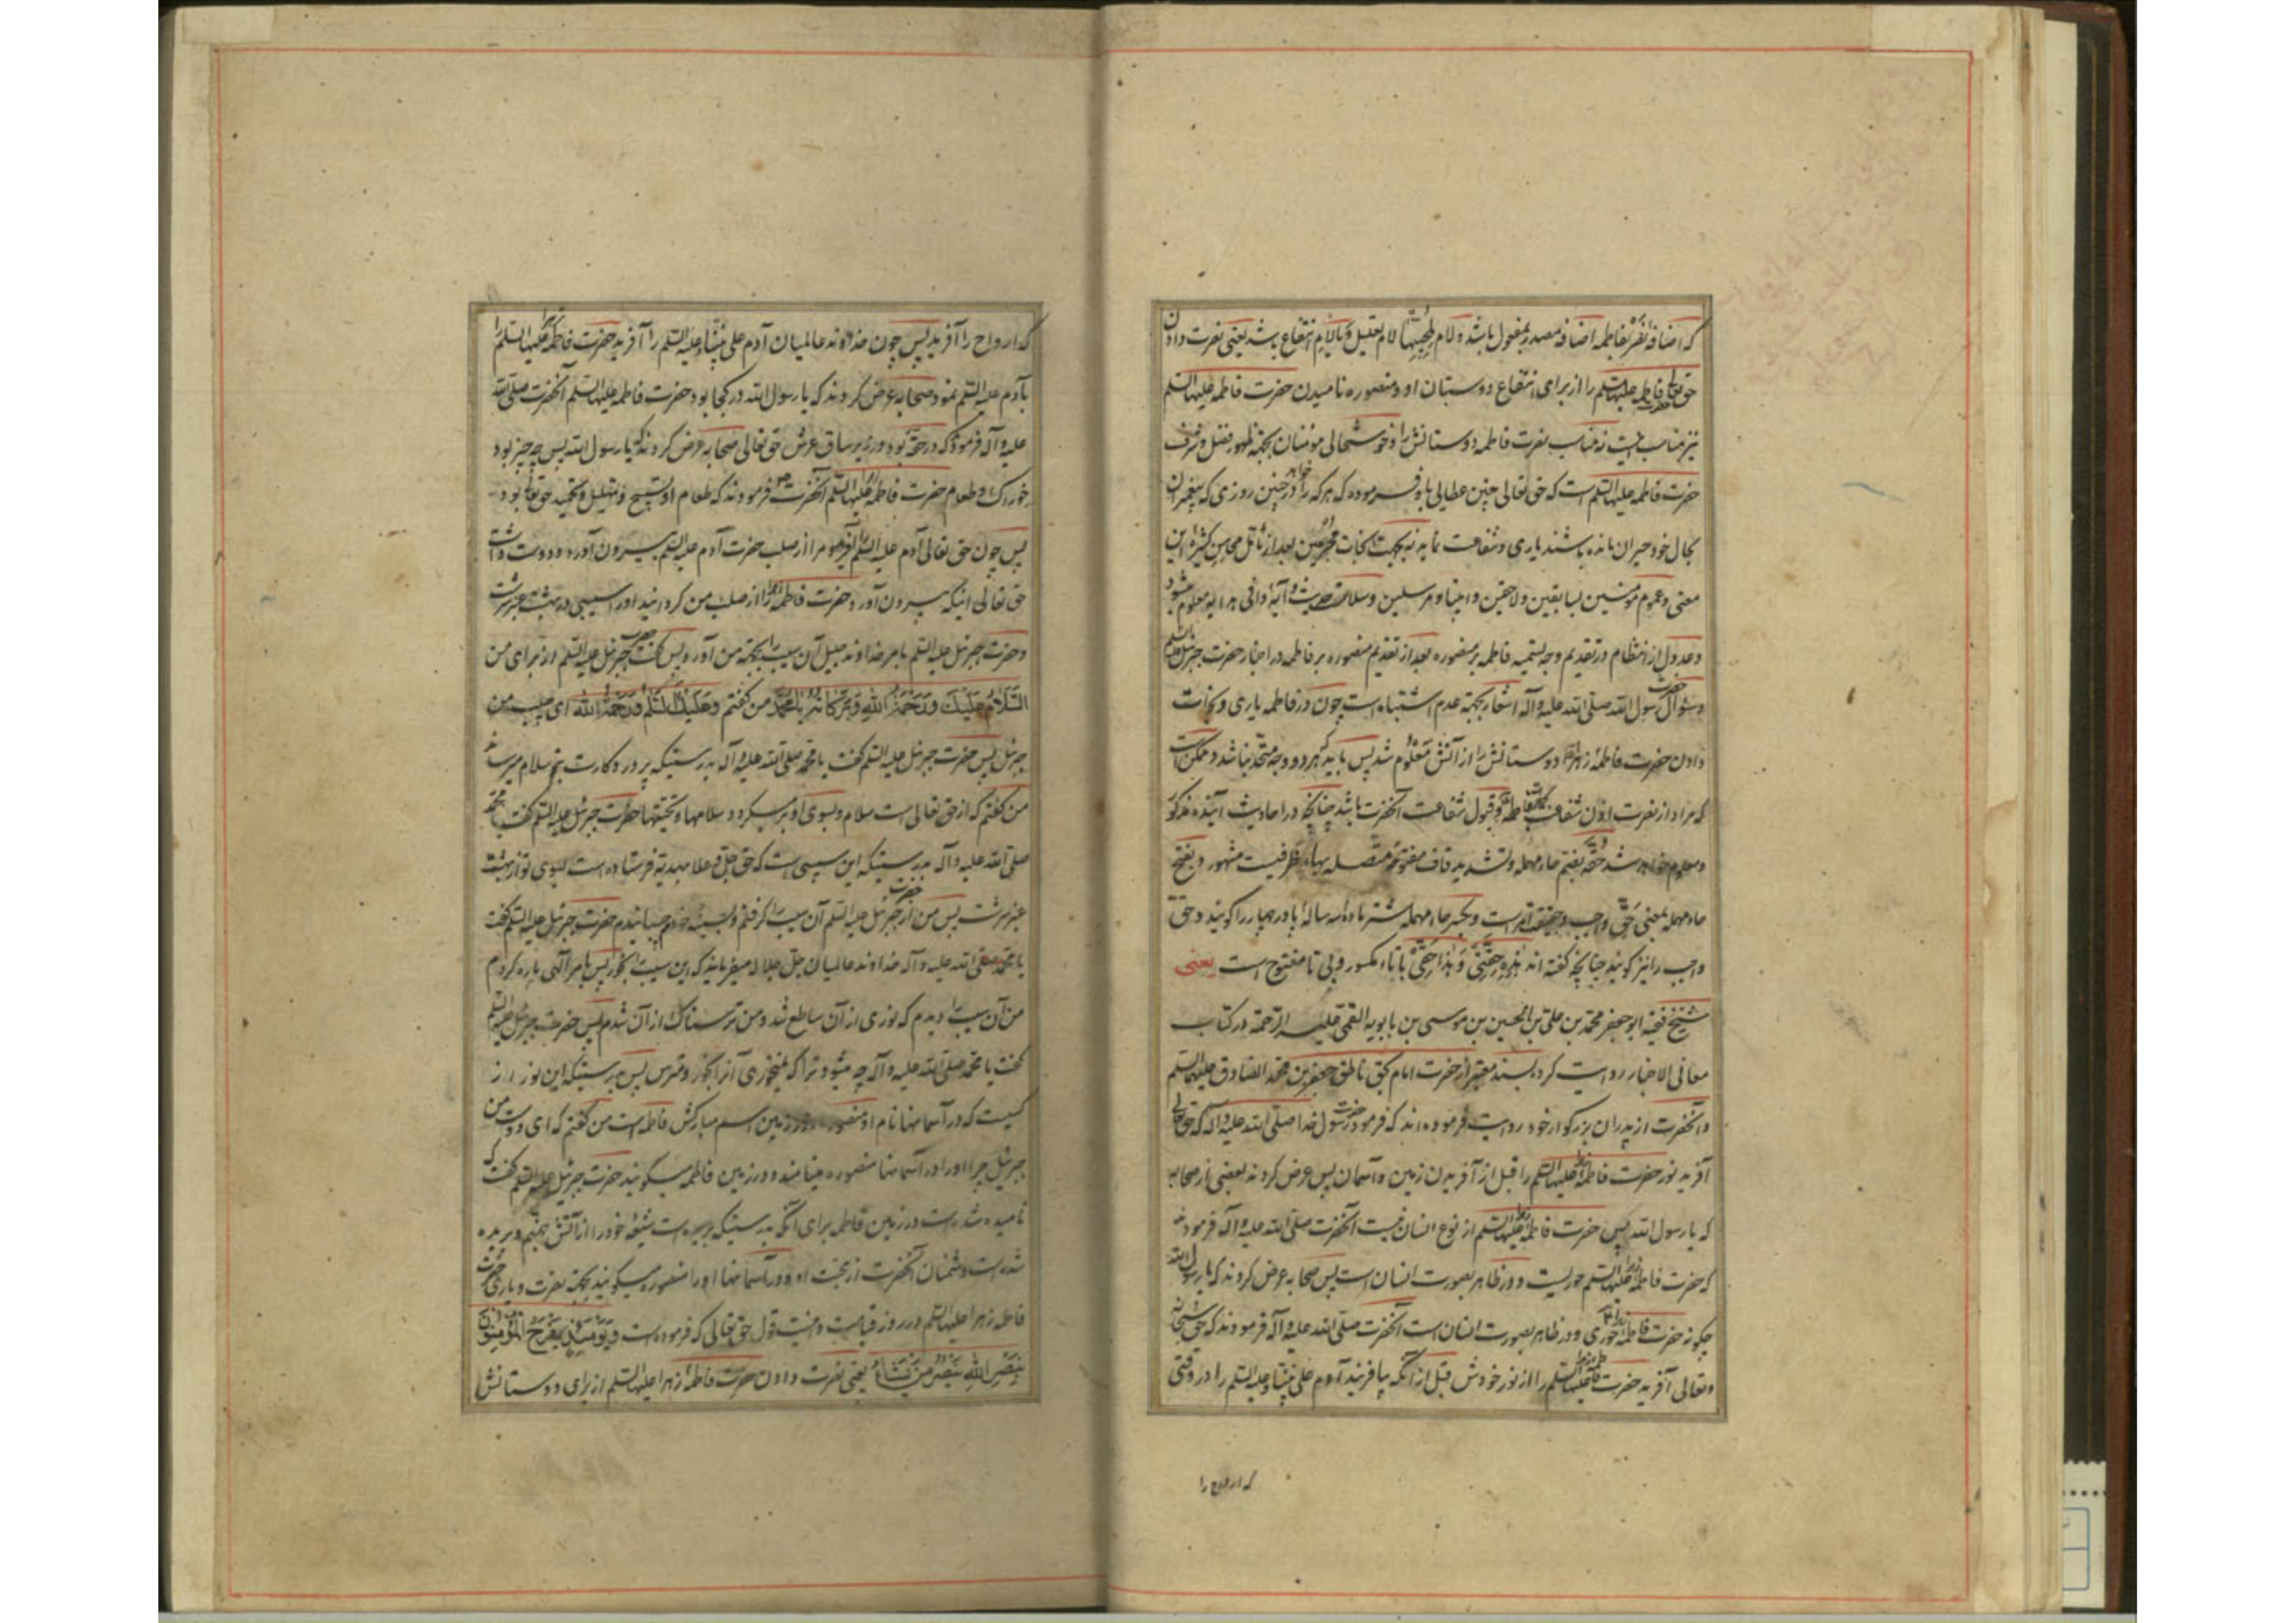 که اضافهٔ نصر بفاطمه اضافه مصدر بمفعول باشد و لام لمحبیها لام تعلیل و یا لام انتفاع باشد یعنی نصرت دادن
حق تعالی فاطمه علیها السلم را از برای انتفاع دوستان او و منصوره نامیدن حضرت فاطمه علیها السلم
نیز مناسب نصرت فاطمه دوستانش را و خوشحالی مؤمنان بجهة ظهور فضل و شرف
حضرت فاطمه علیها السلم است که حق تعالی چنین عطایی باو فرموده که هر که را خواهد در چنین روزی که پیغمبران
بحال خود حیران مانده باشند یاری و شفاعت نماید بجهت نجات مجرمین بعد از تأمل محاسن کثیرهٔ این
معنی و عموم مؤمنین بسابقین و لاحقین و انبیا و مرسلین و سلاست حدیث و آیهٔ وافی هدایه معلوم میشود
و عدول از انتظام در تقدیم وجه تسمیه فاطمه بر منصوره بعد از تقدیم منصوره بر فاطمه در اخبار حضرت جبرئیل علیه السلم
و سؤال حضرت رسول الله صلی الله علیه و آله اشعار بجهة عدم اشتباه است چون در فاطمه یاری و نجات
دادن حضرت فاطمهٔ زهرا دوستانش را از آتش معلوم شد پس باید که هر دو وجه متحد نباشد و ممکن است
که مراد از نصرت اذن شفاعت فاطمه و قبول شفاعت آنحضرت باشد چنانچه در احادیث آینده مذکور
و معلوم خواهد شد حقه بضم حاء مهمله و تشدید قاف مفتوحه متصله بهاء ظرفیست مشهور و بفتح
حاء مهمله بمعنی حق و واجب و حقیقة و بکسر حاء مهمله شتر ماده سه ساله یا در چهار را گویند و حق
واجب را نیز گویند چنانچه گفته اند هذه حقتی و هذا حقی با تاء مکسور و بی تا مفتوح است یعنی
شیخ فقیه ابو جعفر محمد بن علی بن الحسین بن موسی بن بابویه القمی علیه الرحمة در کتاب
معانی الاخبار روایت کرده بسند معتبر از حضرت امام بحق ناطق جعفر بن محمد الصادق علیهما السلم
و آنحضرت از پدران بزرگوار خود روایت فرموده اند که فرمود حضرت رسول خدا صلی الله علیه و آله که حق تعالی
آفرید نور حضرت فاطمه زهرا علیها السلم را قبل از آفریدن زمین و آسمان پس عرض کردند بعضی از صحابه
که یا رسول الله پس حضرت فاطمه زهرا علیها السلم از نوع انسان نیست آنحضرت صلی الله علیه و آله فرمودند
که حضرت فاطمه زهرا علیها السلم حوریست و در ظاهر بصورت انسان است پس صحابه عرض کردند که یا رسول الله
چگونه حضرت فاطمه زهرا حوری و در ظاهر بصورت انسان است آنحضرت صلی الله علیه و آله فرمودند که حق سبحانه
و تعالی آفرید حضرت فاطمه زهرا علیها السلم را از نور خودش قبل از آنکه بیافریند آدم علی نبینا و علیه السلم را در وقتی
که ارواح را
که ارواح را آفرید پس چون خداوند عالمیان آدم علی نبینا و علیه السلم را آفرید حضرت فاطمه زهرا علیها السلم را
بآدم علیه السلم نمود صحابه عرض کردند که یا رسول الله در کجا بود حضرت فاطمه علیها السلم آنحضرت صلی الله
علیه و آله فرمود که در حقه بود در زیر ساق عرش حق تعالی صحابه عرض کردند که یا رسول الله پس چه چیز بود
خوراک و طعام حضرت فاطمه زهرا علیها السلم آنحضرت ص فرمودند که طعام او تسبیح و تهلیل و تحمید حق تعالی بود
پس چون حق تعالی آدم علیه السلم را آفرید و مرا از صلب حضرت آدم علیه السلم بیرون آورد و دوست داشت
حق تعالی اینکه بیرون آورد حضرت فاطمه زهرا را از صلب من گردانید او را سیبی در بهشت عنبر سرشت
و حضرت جبرئیل علیه السلم بامر خداوند جلیل آن سیب را بجهة من آورد پس گفت حضرت جبرئیل علیه السلم از برای من
السلام علیک و رحمة الله و برکاته یا محمد من گفتم و علیک السلم و رحمة الله ای حبیب من
جبرئیل پس حضرت جبرئیل علیه السلم گفت یا محمد صلی الله علیه و آله بدرستیکه پروردگارت بتو سلام میرساند
من گفتم که از حق تعالی است سلام و بسوی او بر میگردد سلامها و تحیتها حضرت جبرئیل علیه السلم گفت یا محمد
صلی الله علیه و آله بدرستیکه این سیبی است که حق جل و علا بهدیه فرستاده است بسوی تو از بهشت
عنبر سرشت پس من از حضرت جبرئیل علیه السلم آن سیب را گرفتم و بسینه خودم چسبانیدم حضرت جبرئیل علیه السلم گفت
یا محمد صلی الله علیه و آله خداوند عالمیان جل جلاله میفرماید که این سیب را بخور پس بامر الهی پاره کردم
من آن سیب را و دیدم که نوری از آن ساطع شد و من ترسناک از آن شدم پس حضرت جبرئیل علیه السلم
گفت یا محمد صلی الله علیه و آله چه میشود ترا که نمیخوری آنرا بخور و مترس پس بدرستیکه این نور از
کسیست که در آسمانها نام او منصوره و در زمین اسم مبارکش فاطمه است من گفتم که ای دوست من
جبرئیل چرا او را در آسمانها منصوره مینامند و در زمین فاطمه میگویند حضرت جبرئیل علیه السلم گفت که
نامیده شده است در زمین فاطمه برای آنکه بدرستیکه بریده است شیعهٔ خود را از آتش جهنم و بریده
شده است دشمنان آنحضرت از محبت او و در آسمانها او را منصوره میگویند بجهة نصرت و یاری حضرت
فاطمه زهرا علیها السلم در روز قیامت و اینست قول حق تعالی که فرموده است و یومئذ یفرح المؤمنون
بنصر الله ینصر من یشاء یعنی نصرت دادن حضرت فاطمهٔ زهرا علیها السلم از برای دوستانش